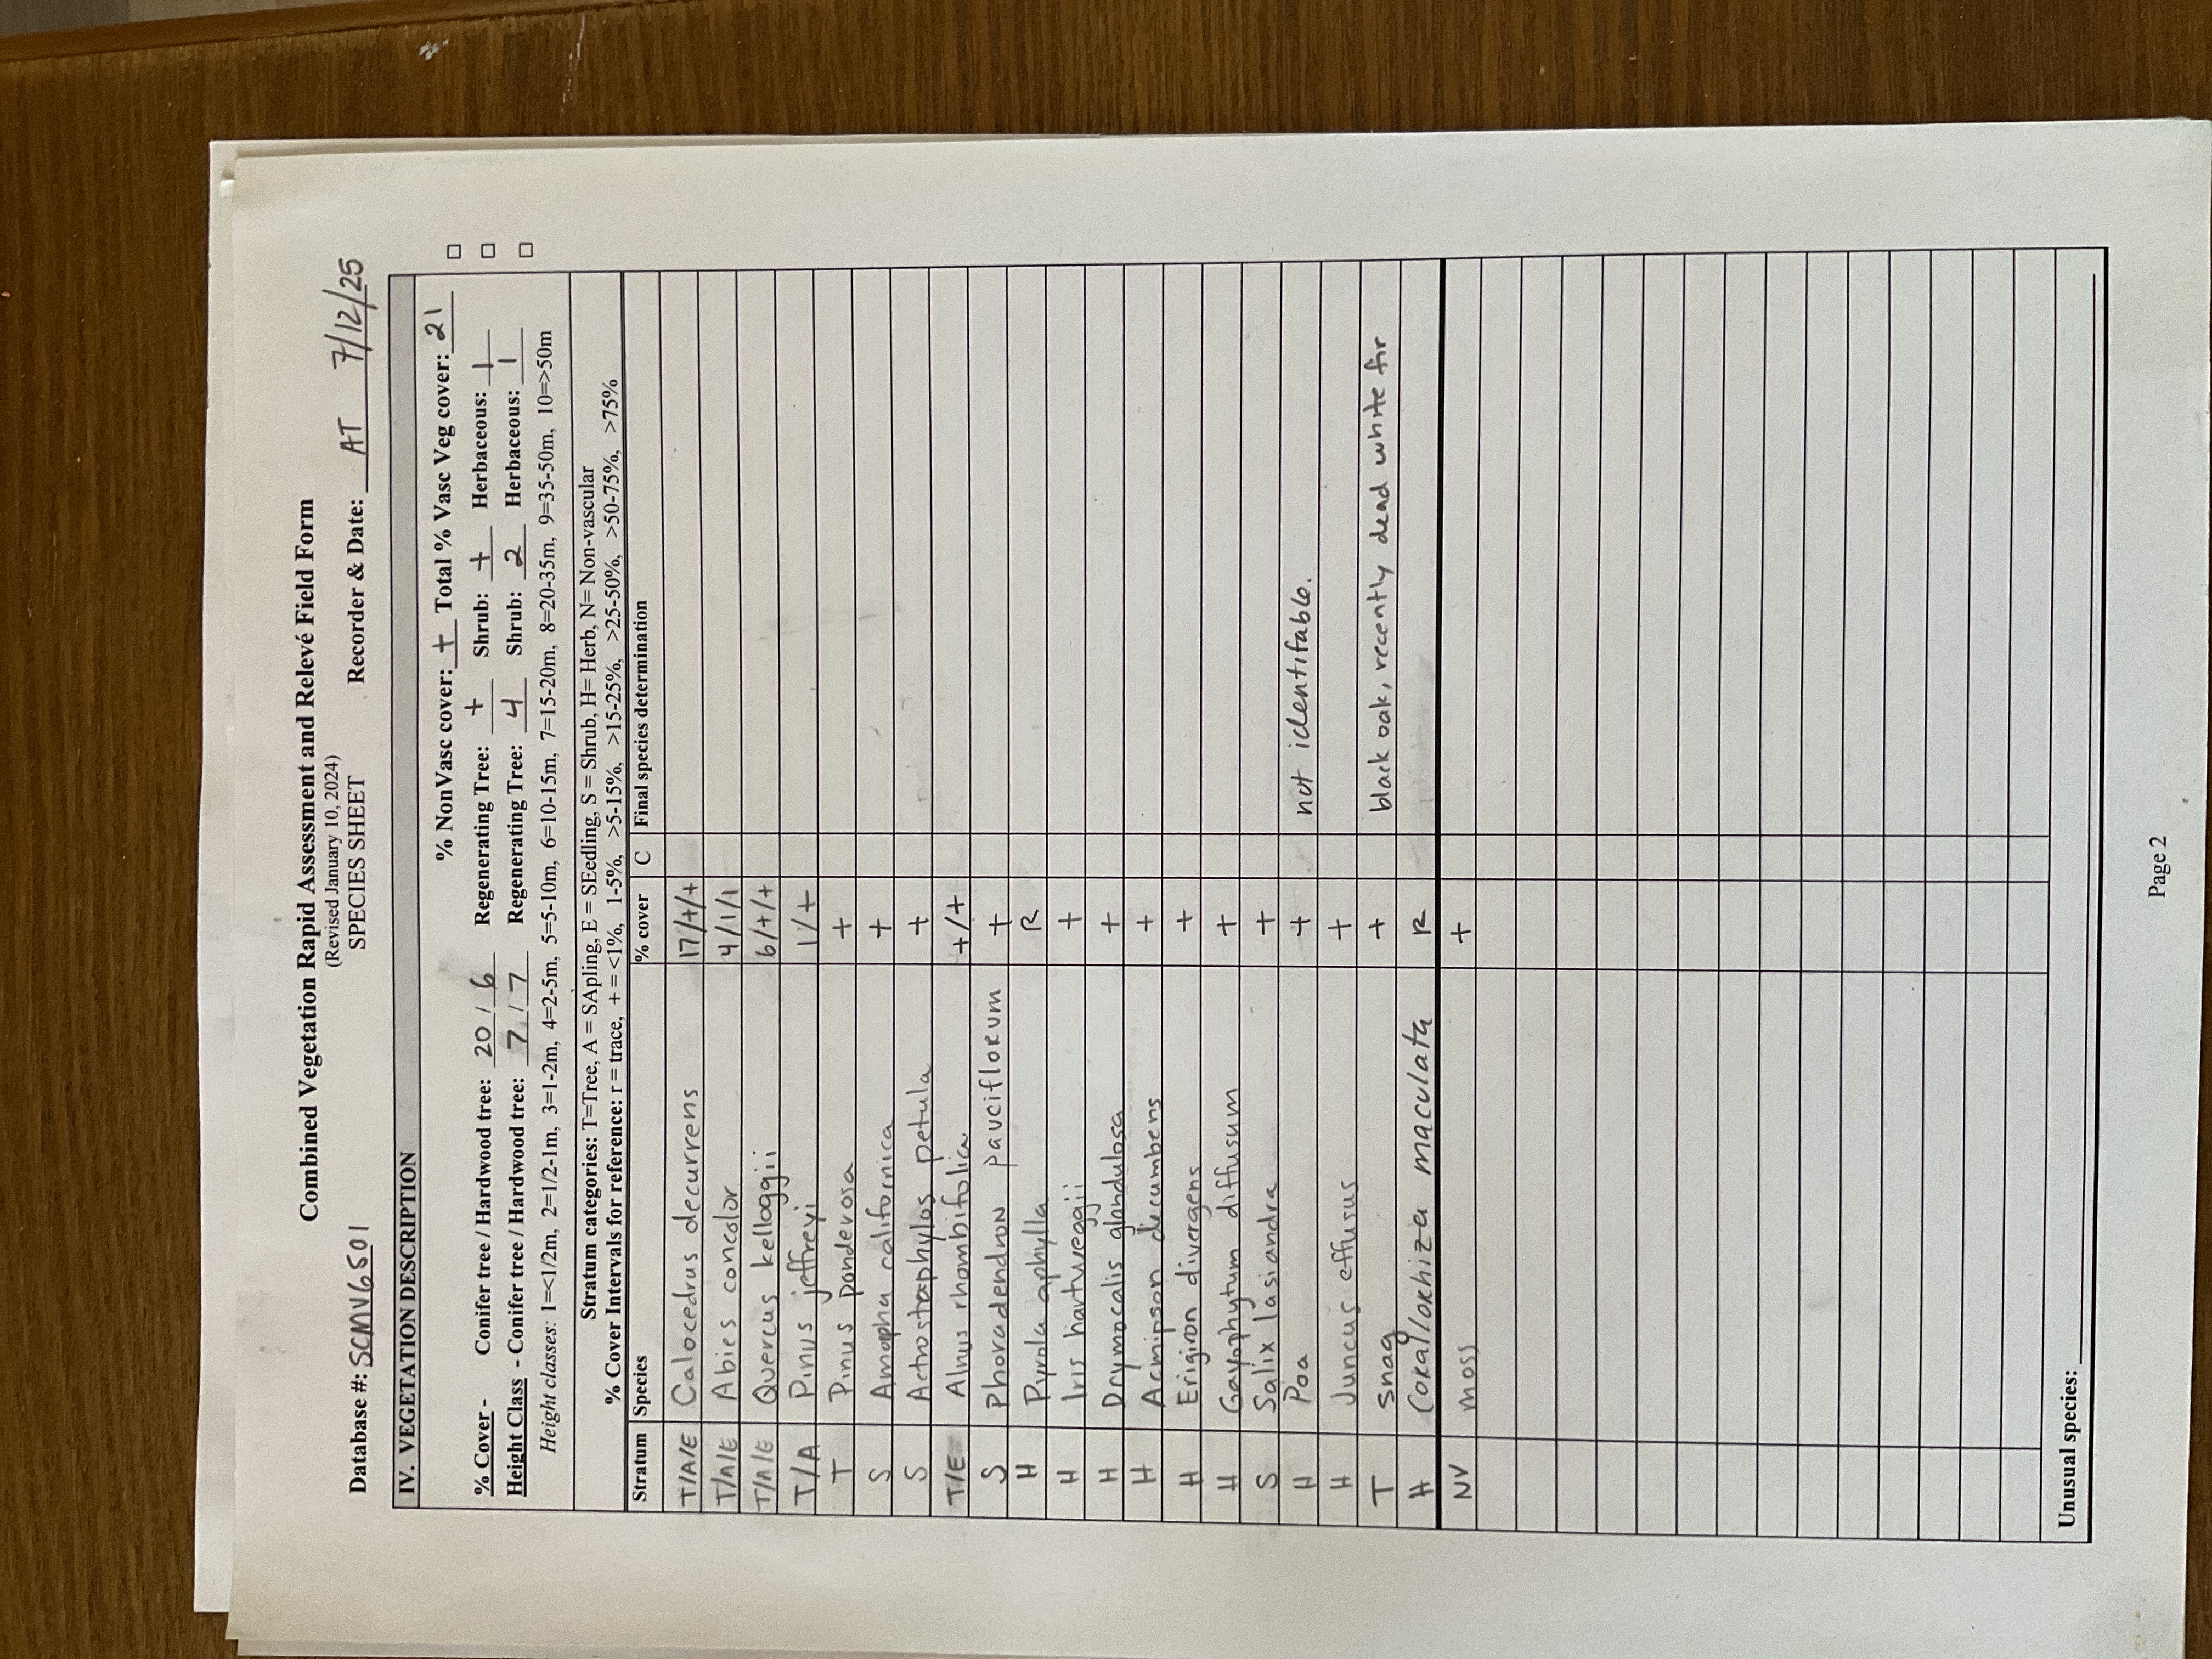 Combined Vegetation Rapid Assessment and Relevé Field Form
(Revised January 10, 2024)
SPECIES SHEET
Database #: SCMV6501 Recorder & Date: AT 7/12/25
IV. VEGETATION DESCRIPTION
% NonVasc cover: + Total % Vasc Veg cover: 21
% Cover - Conifer tree / Hardwood tree: 20 / 6 Regenerating Tree: + Shrub: + Herbaceous: 1
Height Class - Conifer tree / Hardwood tree: 7 / 7 Regenerating Tree: 4 Shrub: 2 Herbaceous: 1
Height classes: 1=<1/2m, 2=1/2-1m, 3=1-2m, 4=2-5m, 5=5-10m, 6=10-15m, 7=15-20m, 8=20-35m, 9=35-50m, 10=>50m
Stratum categories: T=Tree, A = SApling, E = SEedling, S = Shrub, H= Herb, N= Non-vascular
% Cover Intervals for reference: r = trace, + = <1%, 1-5%, >5-15%, >15-25%, >25-50%, >50-75%, >75%
Stratum Species % cover C Final species determination
T/A/E Calocedrus decurrens 17/+/+
T/A/E Abies concolor 4/1/1
T/A/E Quercus kelloggii 6/+/+
T/A Pinus jeffreyi 1/+
T Pinus ponderosa +
S Amopha californica +
S Actrostaphylos petula +
T/E Alnus rhombifolica +/+
S Phoradendron pauciflorum +
H Pyrola aphylla R
H Iris hartweggii +
H Drymocalis glandulosa +
H Acmipson decumbens +
H Erigiron divergens +
H Gayophytum diffusum +
S Salix lasiandra +
H Poa + not identifable.
H Juncus effusus +
T snag + black oak, recently dead white fir
H Corallorhiza maculata R
NV moss +
Unusual species:
Page 2